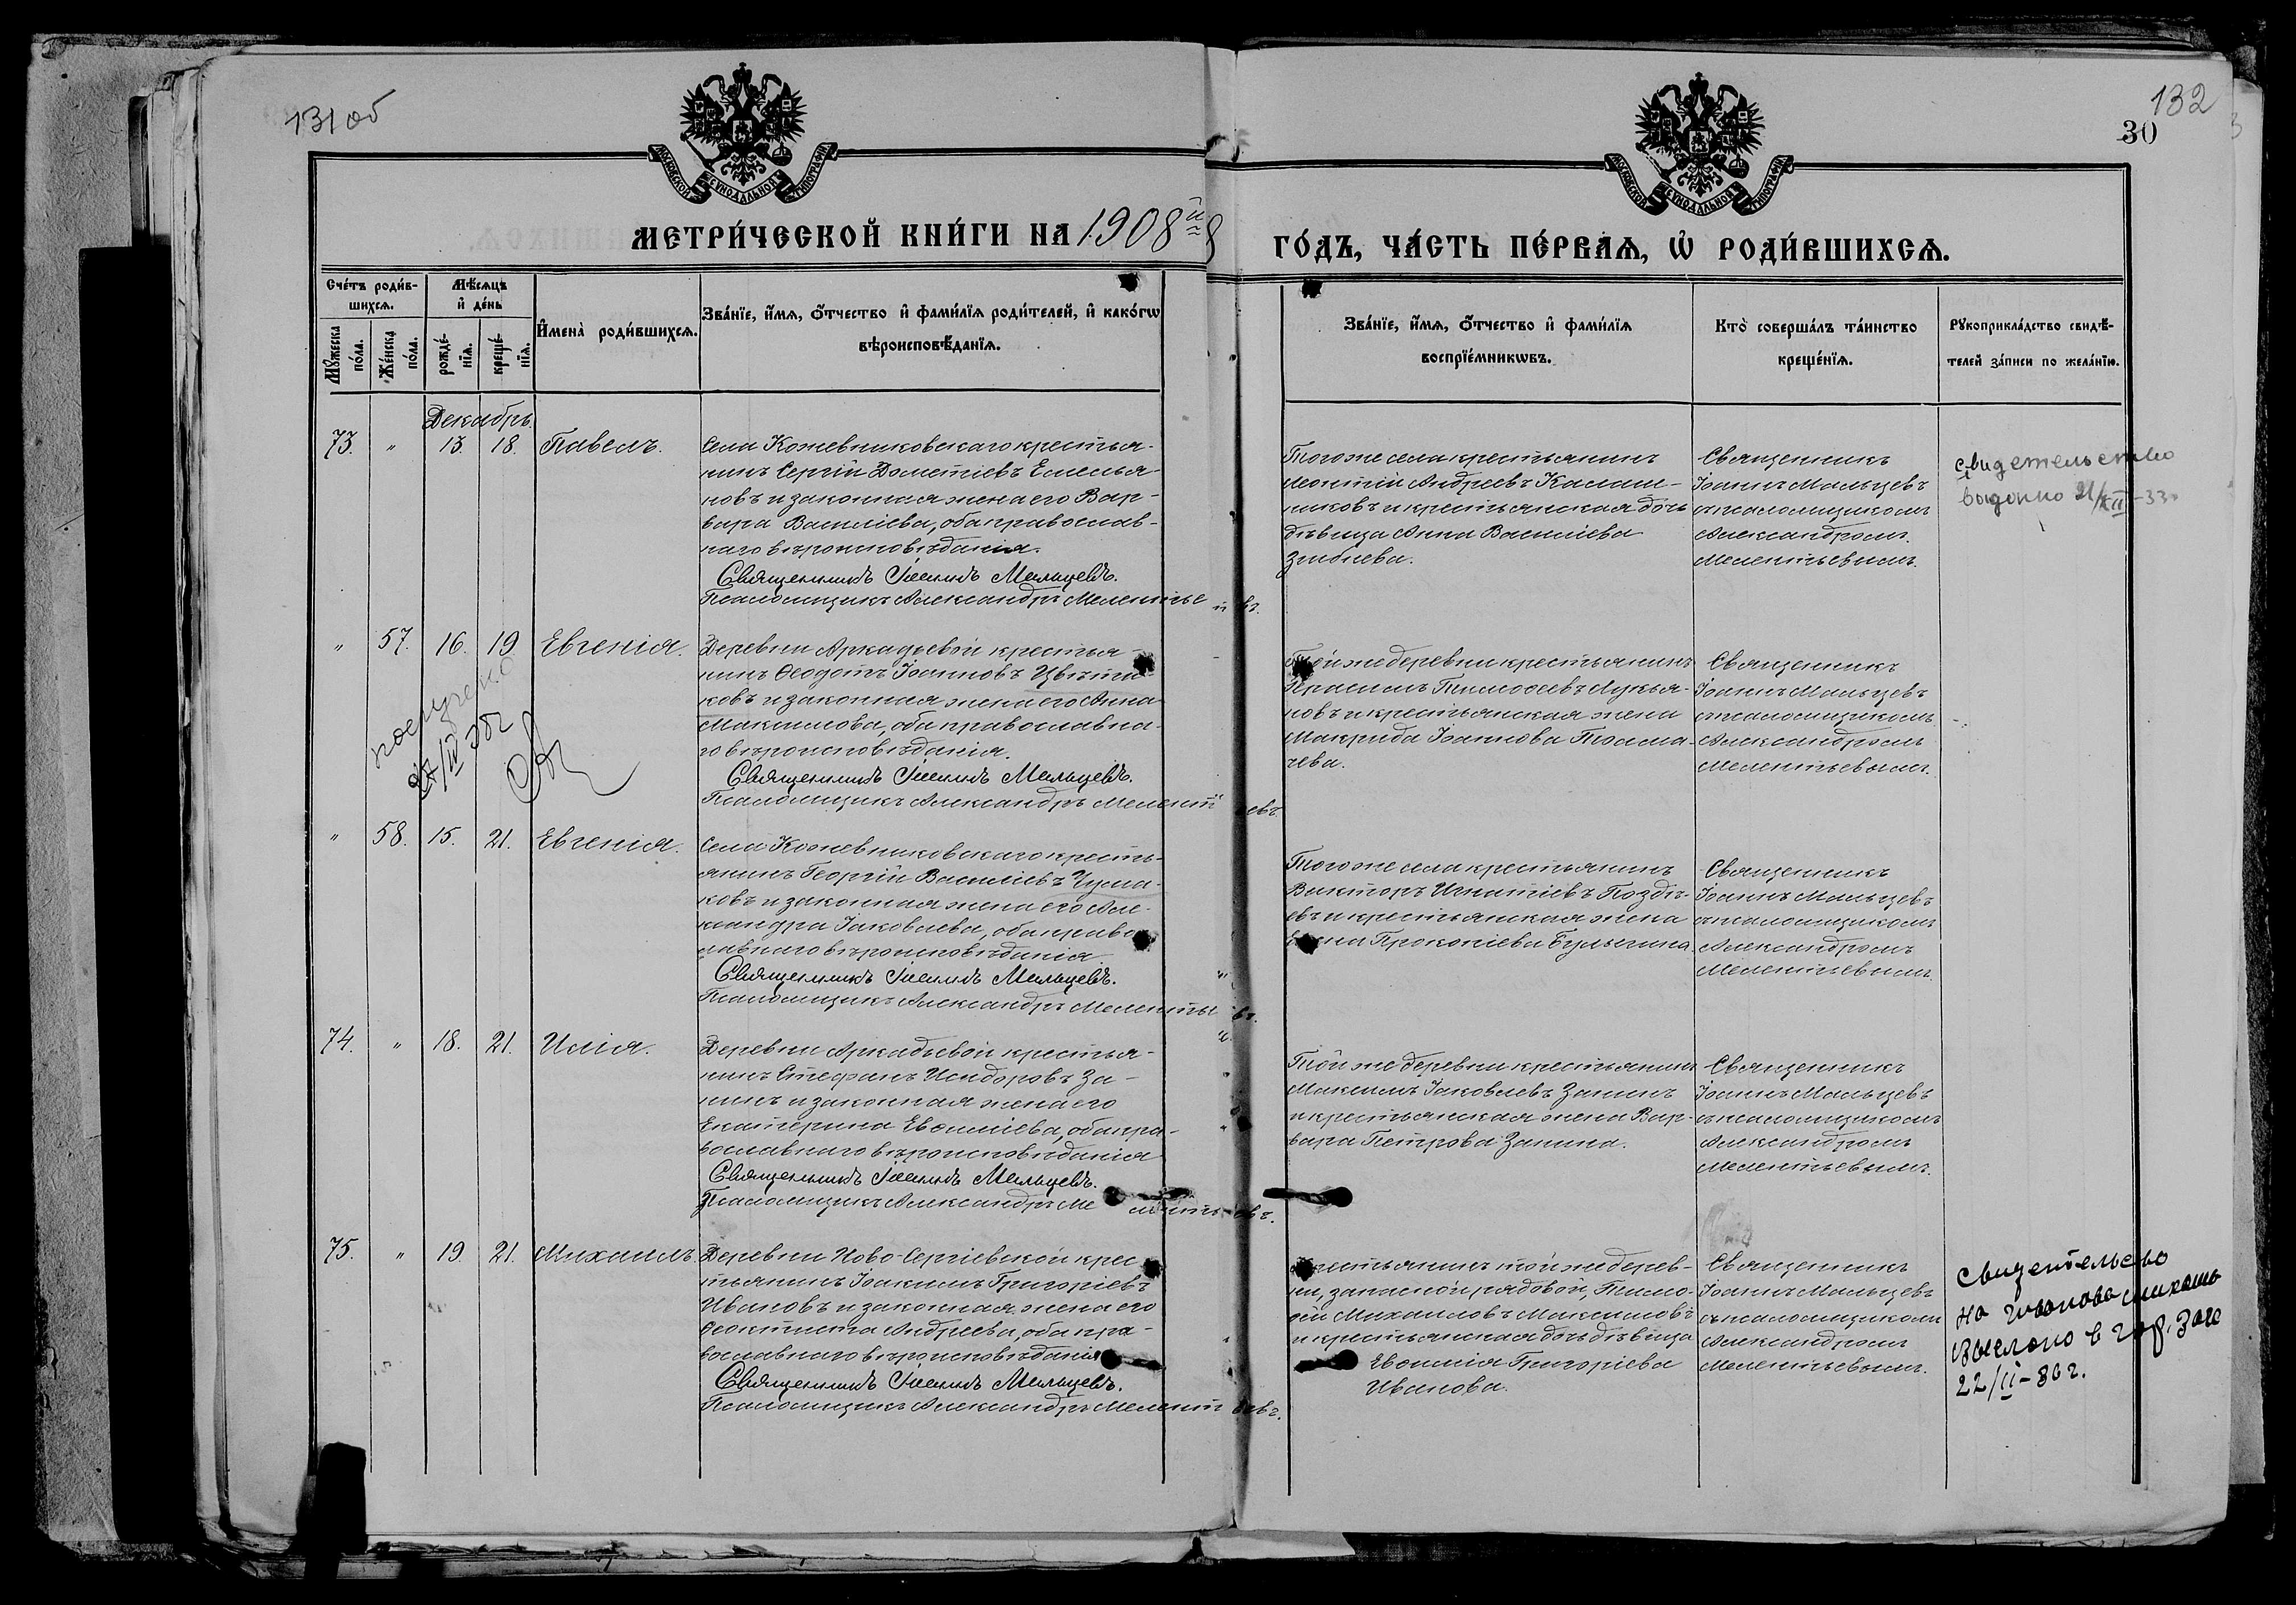 131 об
132
30
МОСКОВСКОЙ СѴНОДАЛЬНОЙ ТИПОГРАФІИ
МОСКОВСКОЙ СѴНОДАЛЬНОЙ ТИПОГРАФІИ
МЕТРИ́ЧЕСКОЙ КНИ́ГИ НА 1908й
ГО́ДЪ, ЧА́СТЬ ПЕ́РВАѦ, Ѽ РОДИ́ВШИХСѦ.
Сче́тъ роди́в-
шихсѧ.
Мѣ́сѧцъ
и҆ де́нь
Мꙋ́жеска
по́ла.
Же́нска
по́ла.
рожде́-
нїѧ.
креще́-
нїѧ.
И҆мена̀ роди́вшихсѧ.
Зва́нїе, и҆́мѧ, ѻ҆́тчество и҆ фами́лїѧ роди́телей, и҆ како́гѡ
вѣроисповѣ́данїѧ.
Зва́нїе, и҆́мѧ, ѻ҆́тчество и҆ фами́лїѧ
воспрїе́мникѡвъ.
Кто̀ соверша́лъ та́инство
креще́нїѧ.
Рꙋкоприкла́дство свидѣ́-
телей за́писи по жела́нїю.
Декабрь.
73. " 13. 18. Павелъ.
Села Кожевниковскаго крестья-
нинъ Сергій Дометіевъ Емелья-
новъ и законная жена его Вар-
вара Василіева, оба православ-
наго вѣроисповѣданія.
Священникъ Іоаннъ Мальцевъ.
Псаломщикъ Александръ Мелентьевъ.
Того же села крестьянинъ
Леонтій Андреевъ Калаш-
никовъ и крестьянская дочь
дѣвица Анна Василіева
Зибіева.
Священникъ
Іоаннъ Мальцевъ
съ псаломщикомъ
Александромъ
Мелентьевымъ.
свидетельство
выдано 21/XII-33
" 57. 16. 19. Евгенія.
Деревни Аркадьевой крестья-
нинъ Ѳеодотъ Іоанновъ Цвѣти-
ковъ и законная жена его Анна
Максимова, оба православна-
го вѣроисповѣданія.
Священникъ Іоаннъ Мальцевъ.
Псаломщикъ Александръ Мелентьевъ.
Той же деревни крестьянинъ
Герасимъ Тимоѳеевъ Лукья-
новъ и крестьянская жена
Макрида Іоаннова Толма-
чева.
Священникъ
Іоаннъ Мальцевъ
съ псаломщикомъ
Александромъ
Мелентьевымъ.
" 58. 15. 21. Евгенія.
Села Кожевниковскаго кресть-
янинъ Георгій Василіевъ Чума-
ковъ и законная жена его Але-
ксандра Іаковлева, оба правос-
лавнаго вѣроисповѣданія.
Священникъ Іоаннъ Мальцевъ.
Псаломщикъ Александръ Мелентьевъ.
Того же села крестьянинъ
Викторъ Игнатіевъ Поздѣ-
евъ и крестьянская жена
Елена Прокопіева Булыгина.
Священникъ
Іоаннъ Мальцевъ
съ псаломщикомъ
Александромъ
Мелентьевымъ.
74. " 18. 21. Илія.
Деревни Аркадьевой крестья-
нинъ Стефанъ Исидоровъ За-
нинъ и законная жена его
Екатерина Евѳиміева, оба пра-
вославнаго вѣроисповѣданія
Священникъ Іоаннъ Мальцевъ.
Псаломщикъ Александръ Мелентьевъ.
Той же деревни крестьянинъ
Максимъ Іаковлевъ Занинъ
и крестьянская жена Вар-
вара Петрова Занина.
Священникъ
Іоаннъ Мальцевъ
съ псаломщикомъ
Александромъ
Мелентьевымъ.
75. " 19. 21. Михаилъ.
Деревни Ново-Сергіевской крес-
тьянинъ Іоакимъ Григоріевъ
Ивановъ и законная жена его
Ѳеоктиста Андреева, оба пра-
вославнаго вѣроисповѣданія
Священникъ Іоаннъ Мальцевъ.
Псаломщикъ Александръ Мелентьевъ.
Крестьянинъ той же дерев-
ни, запасной рядовой, Тимо-
ѳей Михаиловъ Максимовъ
и крестьянская дочь дѣвица
Евѳимія Григоріева
Иванова.
Священникъ
Іоаннъ Мальцевъ
съ псаломщикомъ
Александромъ
Мелентьевымъ.
Свидетельсво
на Иванова михаил
Выслано в гор. Заге
22/II-36 г.